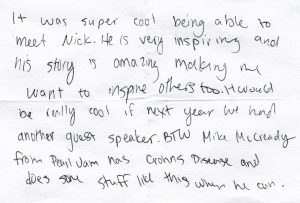 It was super cool being able to
meet Nick. He is very inspiring and
his story is amazing making me
want to inspire others too. It would
be really cool if next year we had
another guest speaker. BTW Mike McCready
from Pearl Jam has Crohns Disease and
does some stuff like this when he can.